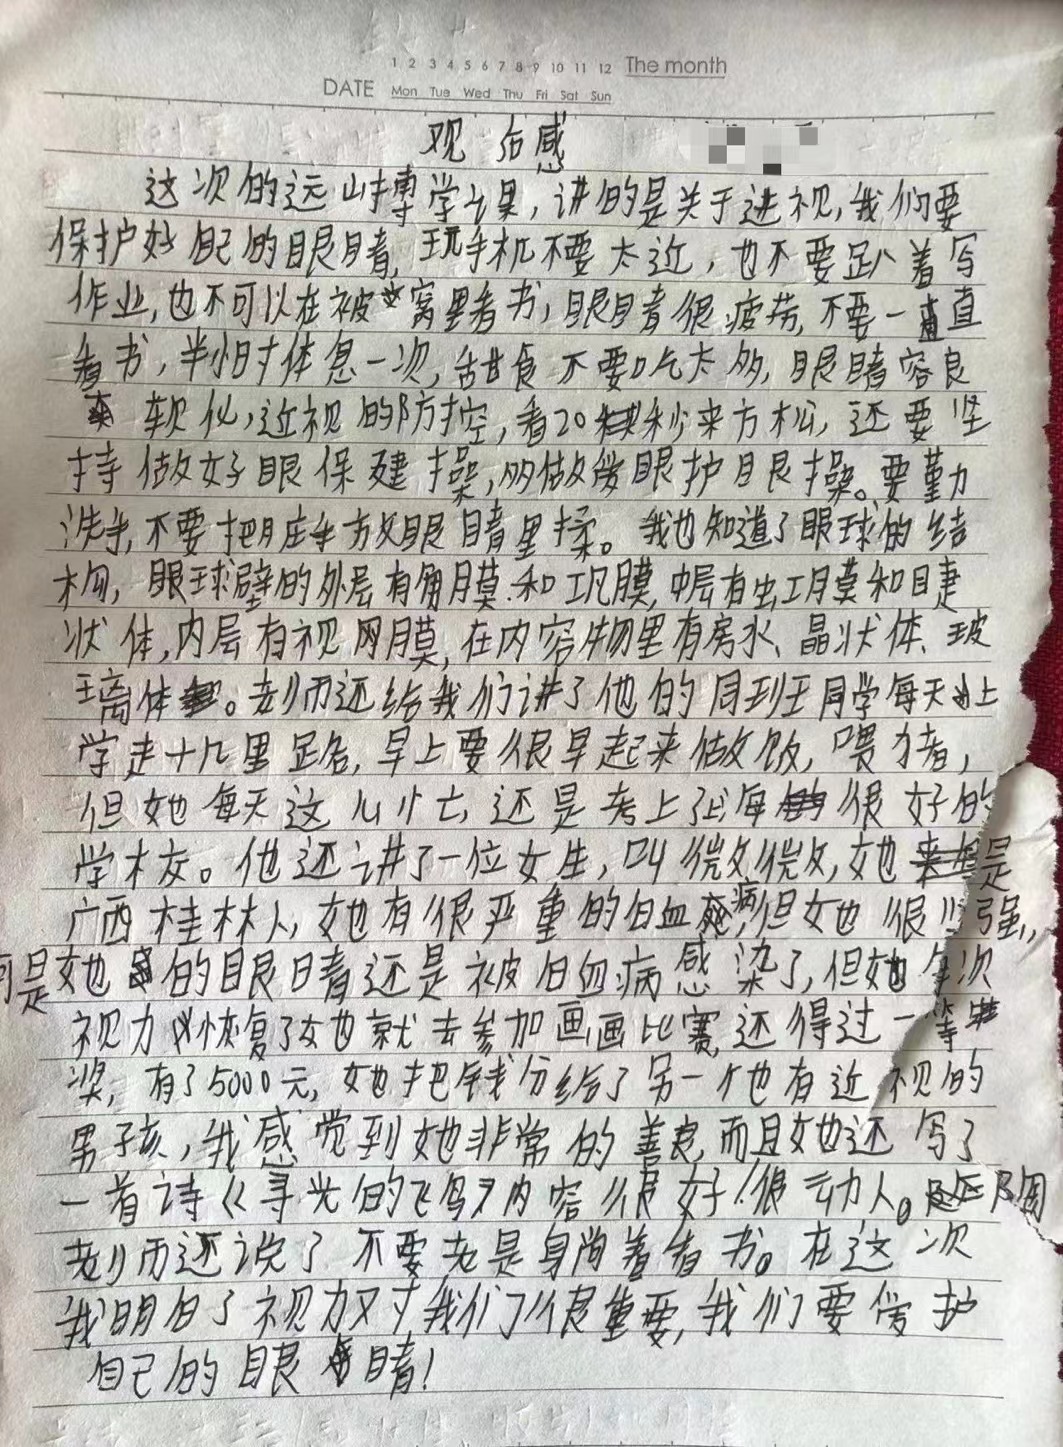 1 2 3 4 5 6 7 8 9 10 11 12 The month
DATE Mon Tue Wed Thu Fri Sat Sun
观后感
这次的远山博学课，讲的是关于进视，我们要
保护好自己的眼睛，玩手机不要太近，也不要趴着写
作业，也不可以在被窝里看书，眼睛很疲劳，不要一直
看书，半小时体息一次，甜食不要吃太多，眼睛容良
软化，近视的防控，看20秒来方松，还要坚
持做好眼保建操，多做爱眼护眼操。要勤
洗手，不要把脏手放眼睛里揉。我也知道了眼球的结
构，眼球壁的外层有角膜和巩膜，中层有虫工膜和睫
状体，内层有视网膜，在内容物里有房水、晶状体、玻
璃体。老师还给我们讲了他的同班同学每天上
学走十几里路，早上要很早起来做饭，喂猪，
但她每天这么忙，还是考上了上海很好的
学校。他还讲了一位女生，叫微微，她是
广西桂林人，她有很严重的白血病，但她很坚强，
可是她的眼睛还是被白血病感染了，但她每次
视力恢复了她就去参加画画比赛，还得过一等
奖，有了5000元，她把钱分给了另一个也有近视的
男孩，我感觉到她非常的善良，而且她还写了
一首诗《寻光的飞鸟》内容很好！很动人。陶
老师还说了不要老是身尚着看书。在这次
我明白了视力对我们很重要，我们要爱护
自己的眼睛！